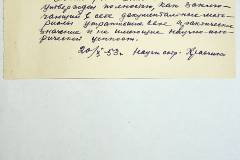 утверждаю полностью, как заклю-
чающий в себе документальные мате-
риалы утратившие свое практическое
значение и не имеющие научно-исто-
рической ценности.
20/X-53г. Научн. сотр.